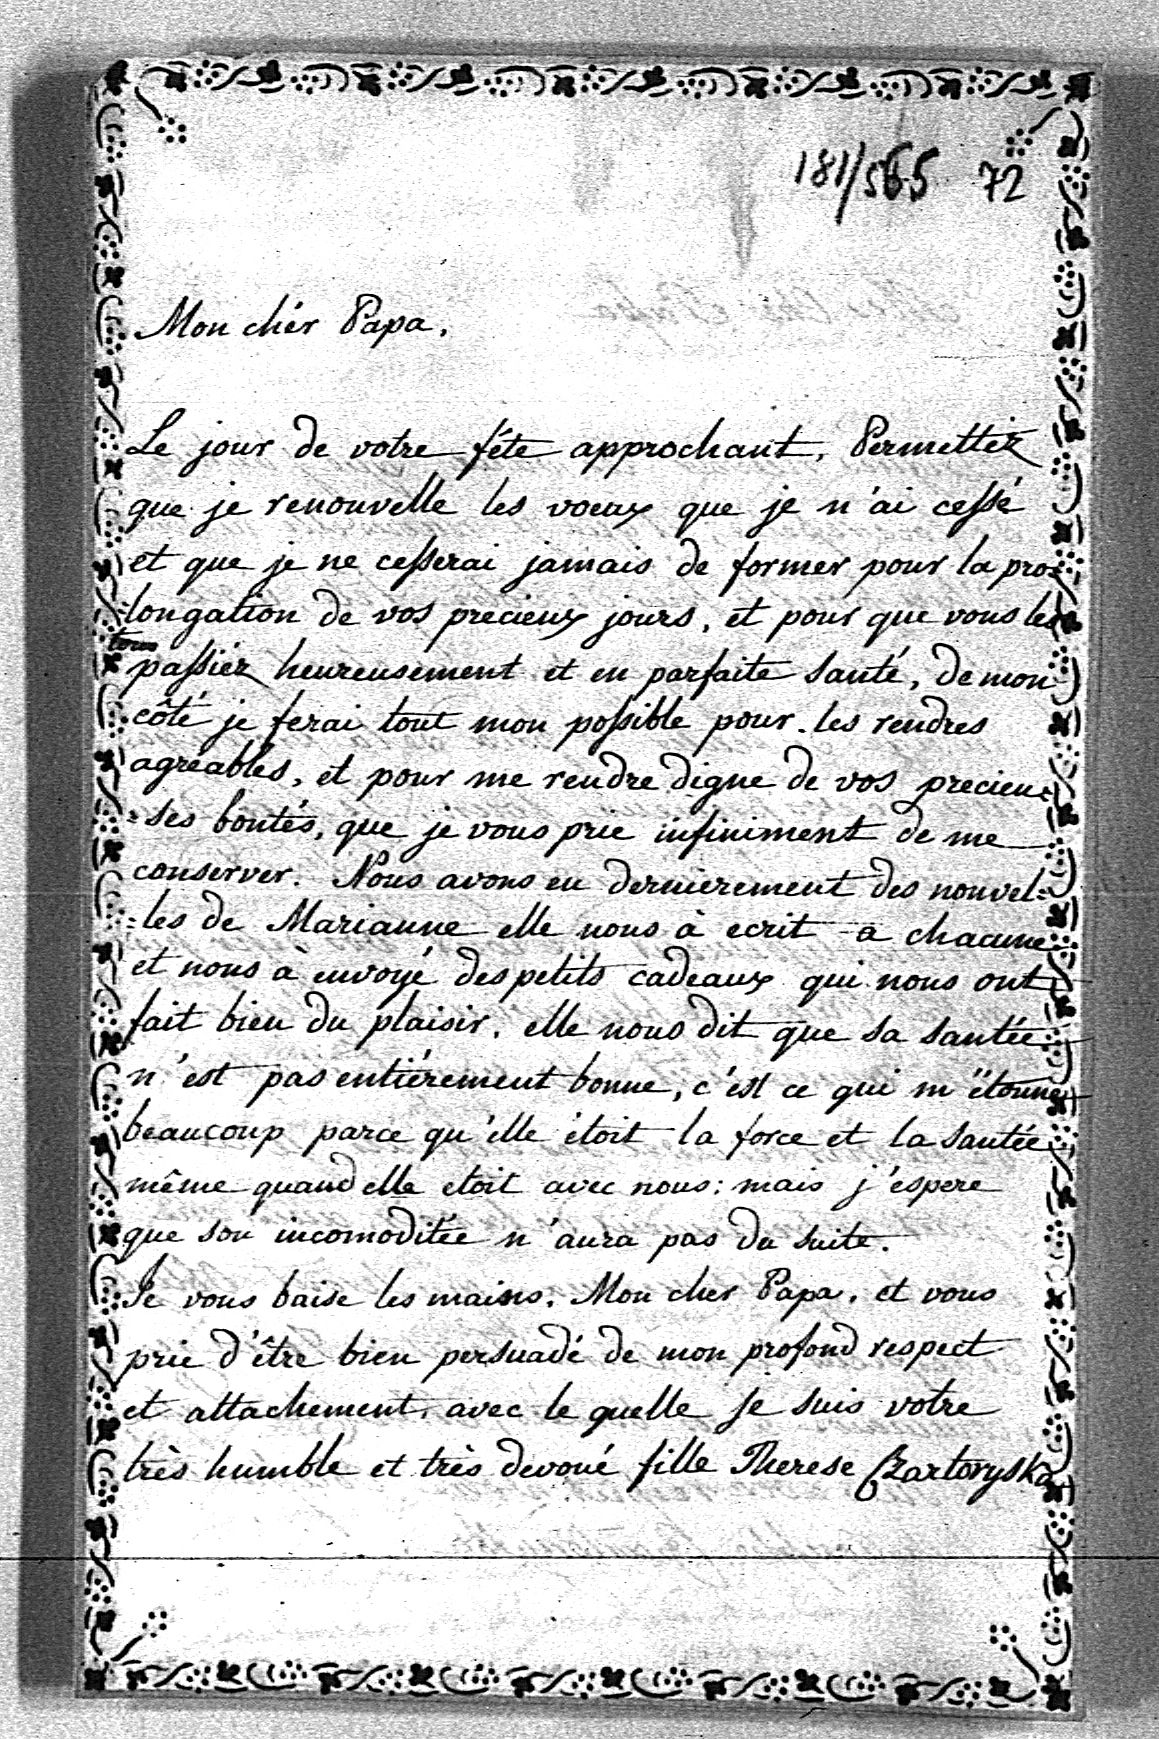 181/565 72
Mon chér Papa,
Le jour de votre féte approchant, Permettéz
que je renouvelle les voeux que je n'ai cessé
et que je ne cesserai jamais de former pour la pro=
=longation de vos precieux jours, et pour que vous les
tous
passiéz heureusement et en parfaite santé, de mon
côté je ferai tout mon possible pour les rendres
agréables, et pour me rendre digne de vos precieu=
=ses bontés, que je vous prie infiniment de me
conserver. Nous avons eu dernierement des nouvel=
=les de Marianne elle nous à ecrit a chacune
et nous à envoyé des petits cadeaux qui nous ont
fait bien du plaisir. elle nous dit que sa santée
n'est pas entiérement bonne, c'est ce qui m'étonne
beaucoup parce qu'elle étoit la force et la santée
même quand elle etoit avec nous: mais j'éspere
que son incomoditée n'aura pas du suite.
Je vous baise les mains, Mon cher Papa, et vous
prie d'être bien persuadé de mon profond respect
et attachement, avec le quelle Je suis votre
très humble et très devoué fille Therese Czartoryska